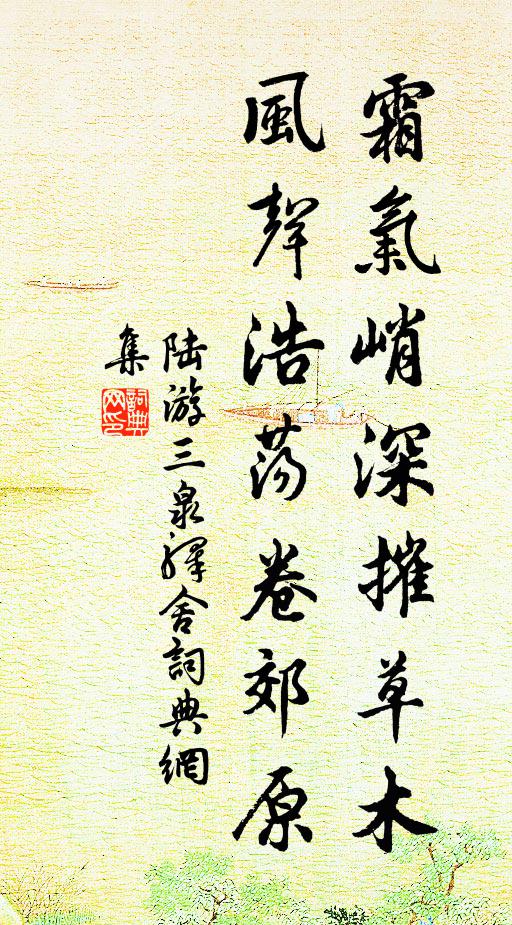 霜氣峭深摧草木
風聲浩蕩卷郊原
陸游三泉驛舍詞典網
集
詞典
网印